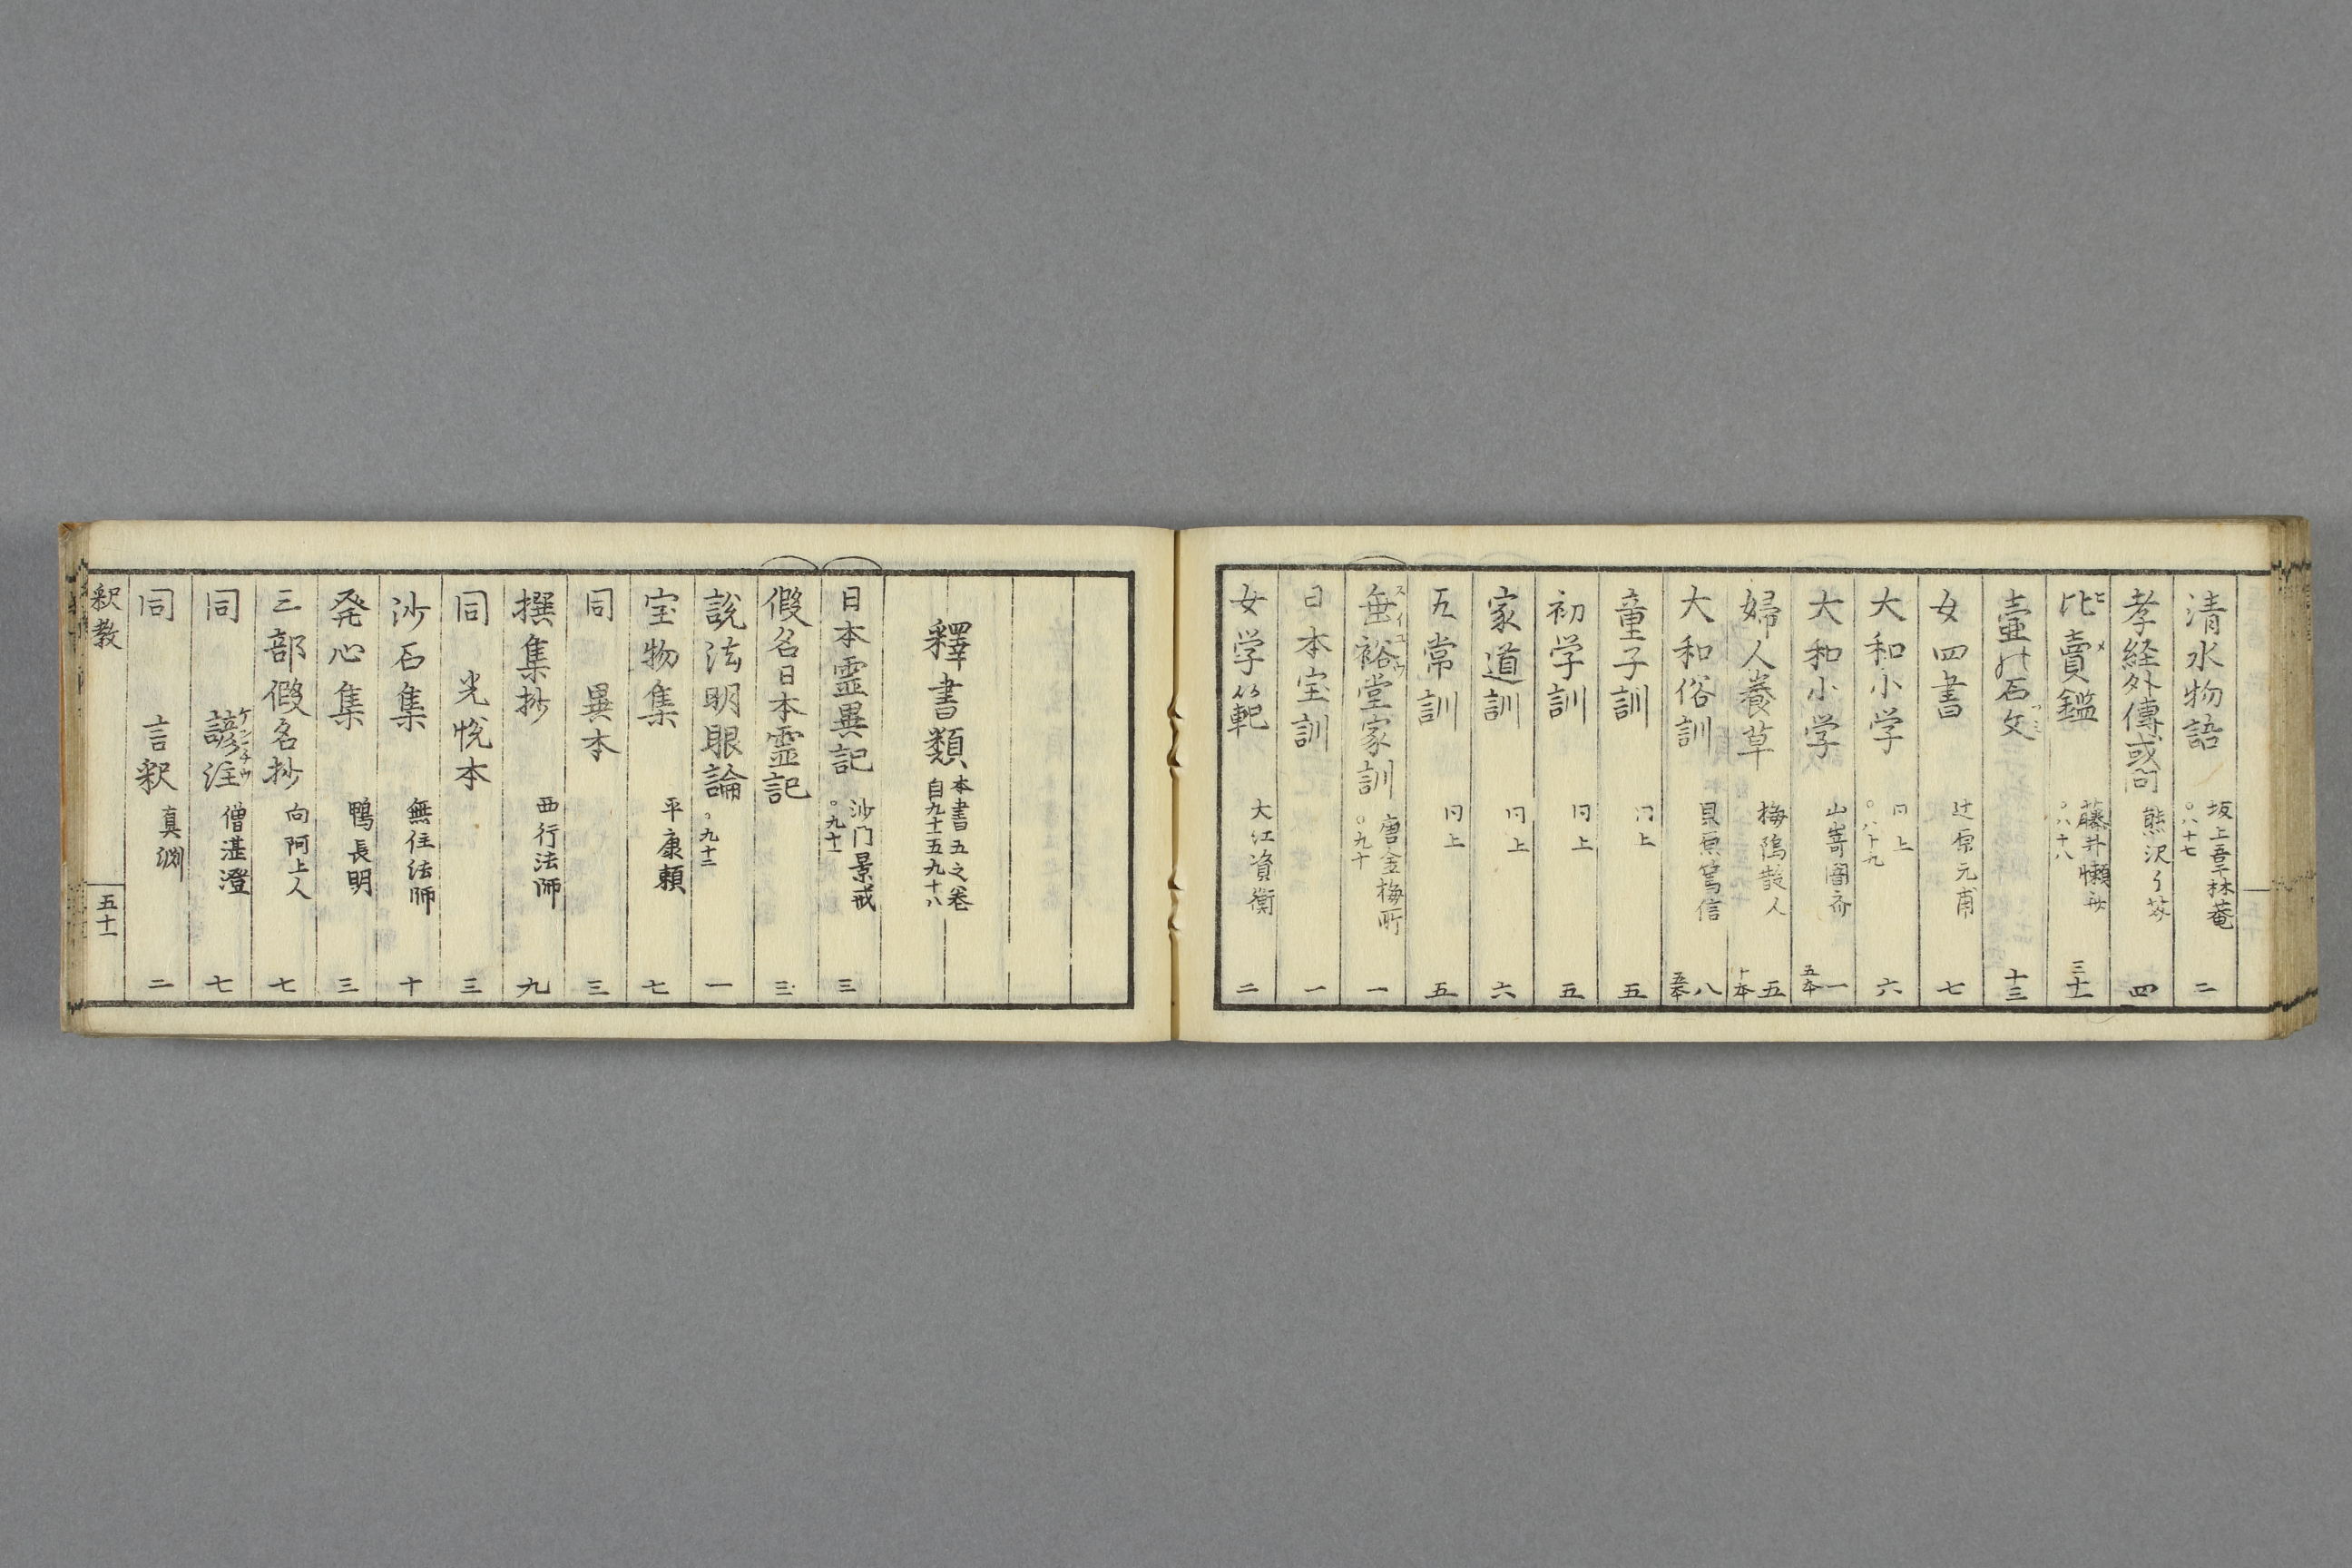 清水物語 坂上吾林菴 ○八十七 二
孝経外傳或問 熊沢了芥 四
比賣鑑 ヒメ 藤井懶斎 ○八十八 三十一
壷の石文 つミ 十三
女四書 辻原元甫 七
大和小学 同上 ○八十九 六
大和小学 山嵜闇斎 一 五本
婦人養草 梅塢散人 五 十本
大和俗訓 貝原篤信 八 五本
童子訓 同上 五
初学訓 同上 五
家道訓 同上 六
五常訓 同上 五
垂裕堂家訓 スイユウ 唐金梅所 ○九十 一
日本宝訓 一
女学範 大江資衡 二
釋書類 本書五之巻 自九十一五九十八
日本霊異記 沙门景戒 ○九十一 三
假名日本霊記 三
説法明眼論 ○九十二 一
宝物集 平康頼 七
同 異本 三
撰集抄 西行法師 九
同 光悦本 三
沙石集 無住法師 十
発心集 鴨長明 三
三部假名抄 向阿上人 七
同 諺注 ゲンチウ 僧湛澄 七
同 言釈 真渕 二
釈教 五十一